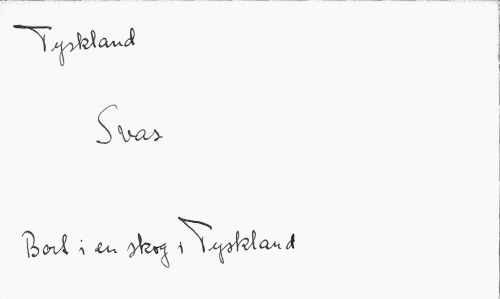 Tyskland
Svas
Bort i en skog i Tyskland